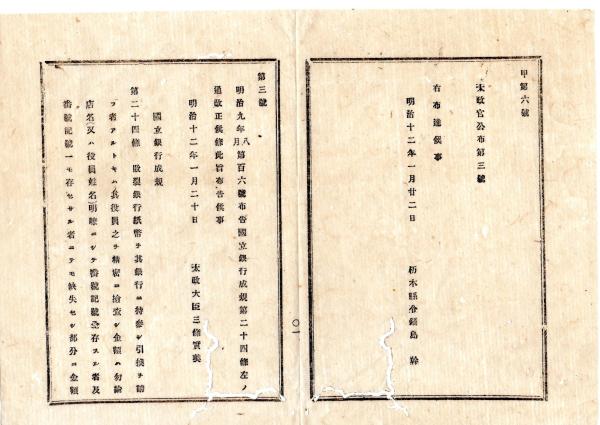 甲第六號
太政官公布第三號
右布達候事
明治十二年一月廿二日
栃木縣令鍋島 幹
第三號
明治九年八月第百六號布告國立銀行成規第二十四條左ノ
通改正候條此旨布告候事
明治十二年一月二十日
太政大臣三條實美
國立銀行成規
第二十四條 毀裂銀行紙幣ヲ其銀行ニ持參シ引換ヲ請
フ者アルトキハ其役員之ヲ精密ニ檢査シ金額ハ勿論
店名又ハ役員姓名明瞭ニシテ番號記號全存スル者及
番號記號一モ存セサル者ニテモ缺失セシ部分ニ金額